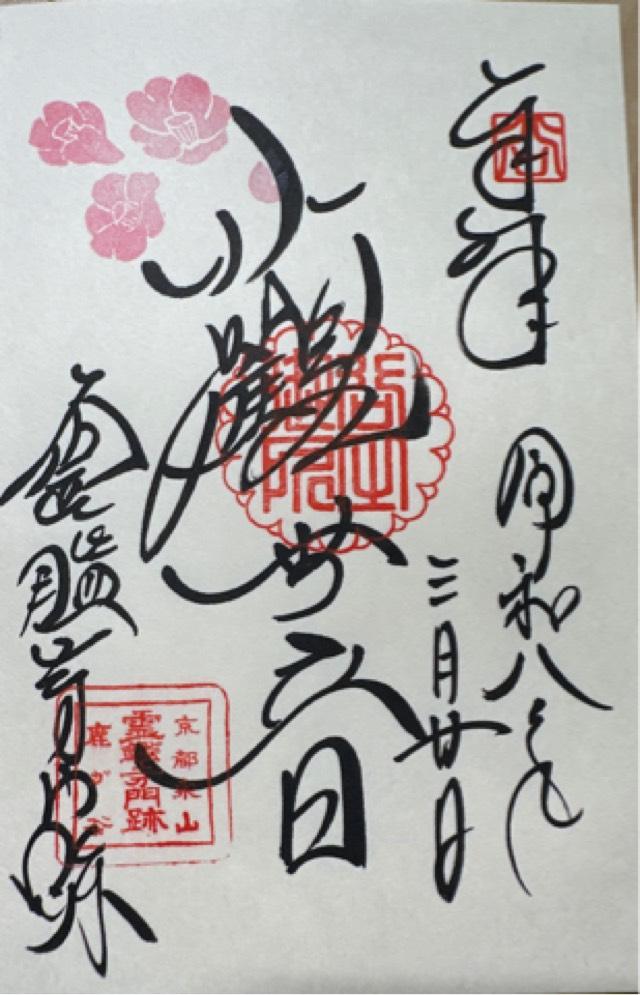 奉拝
令和八年
三月廿日
観世音
霊鑑寺門跡
京都東山
霊鑑寺門跡
鹿ケ谷